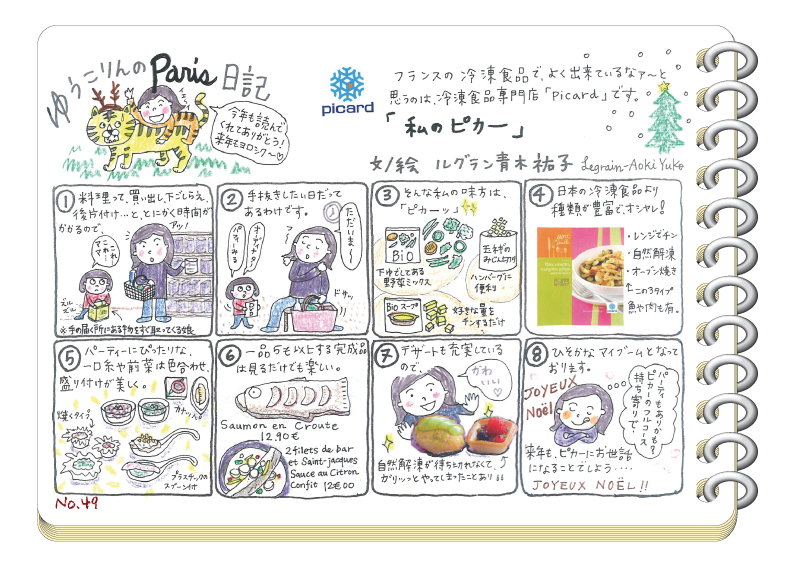 ゆうこりんのParis日記
今年も読んで
くれてありがとう!
来年もヨロシク〜♡
picard
フランスの冷凍食品で、よく出来ているなァ〜と
思うのは、冷凍食品専門店「Picard」です。
「私のピカー」
文/絵 ルグラン青木祐子 Legrain-Aoki Yuko
① 料理って、買い出し、下ごしらえ、
後片付け…と、とにかく時間が
かかるので、
アッ!
これ…
ママ…
ズルズル
※手の届く所にある物をすぐ取ってくる娘
② 手抜きしたい日だって
あるわけです。
ただいま〜
ドサッ
③ そんな私の味方は、
「ピカーッ」
Bio
下ゆでしてある
野菜ミックス
玉ねぎの
みじん切り
ハンバーグに
便利
Bioスープ
好きな量を
チンするだけ
④ 日本の冷凍食品より
種類が豊富で、オシャレ!
・レンジでチン
・自然解凍
・オーブン焼き
←この3タイプ
魚や肉も有。
⑤ パーティーにぴったりな、
一口糸や前菜は色合わせ、
盛り付けが美しく。
焼くタイプ
カナッペも
プラスチックの
スプーン付
⑥ 一品5€以上する完成品
は見るだけでも楽しい。
Saumon en Croute
12.90€
2 filets de bar
et Saint-jacques
Sauce au Citron
Confit 12€00
⑦ デザートも充実している
ので、
かわ
いい♡
自然解凍が待ちきれなくて、
ガリッっとやってしまったことあり
⑧ ひそかなマイブームとなって
おります。
JOYEUX
Noël
パーティもありかも?
ピカーのフルコース
持ち寄りで、
来年も、ピカーにお世話
になることでしょう‥‥
JOYEUX NOËL!!
No.49